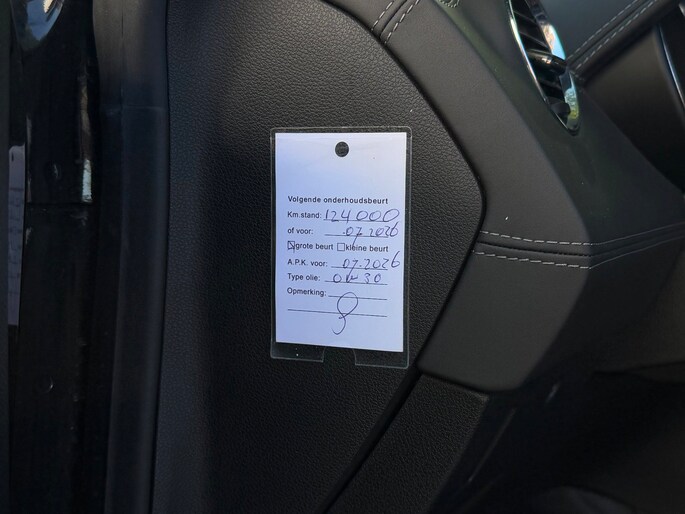 Volgende onderhoudsbeurt
Km.stand: 124000
of voor: 07.2026
grote beurt kleine beurt
A.P.K. voor: 07.2026
Type olie: 0W30
Opmerking: